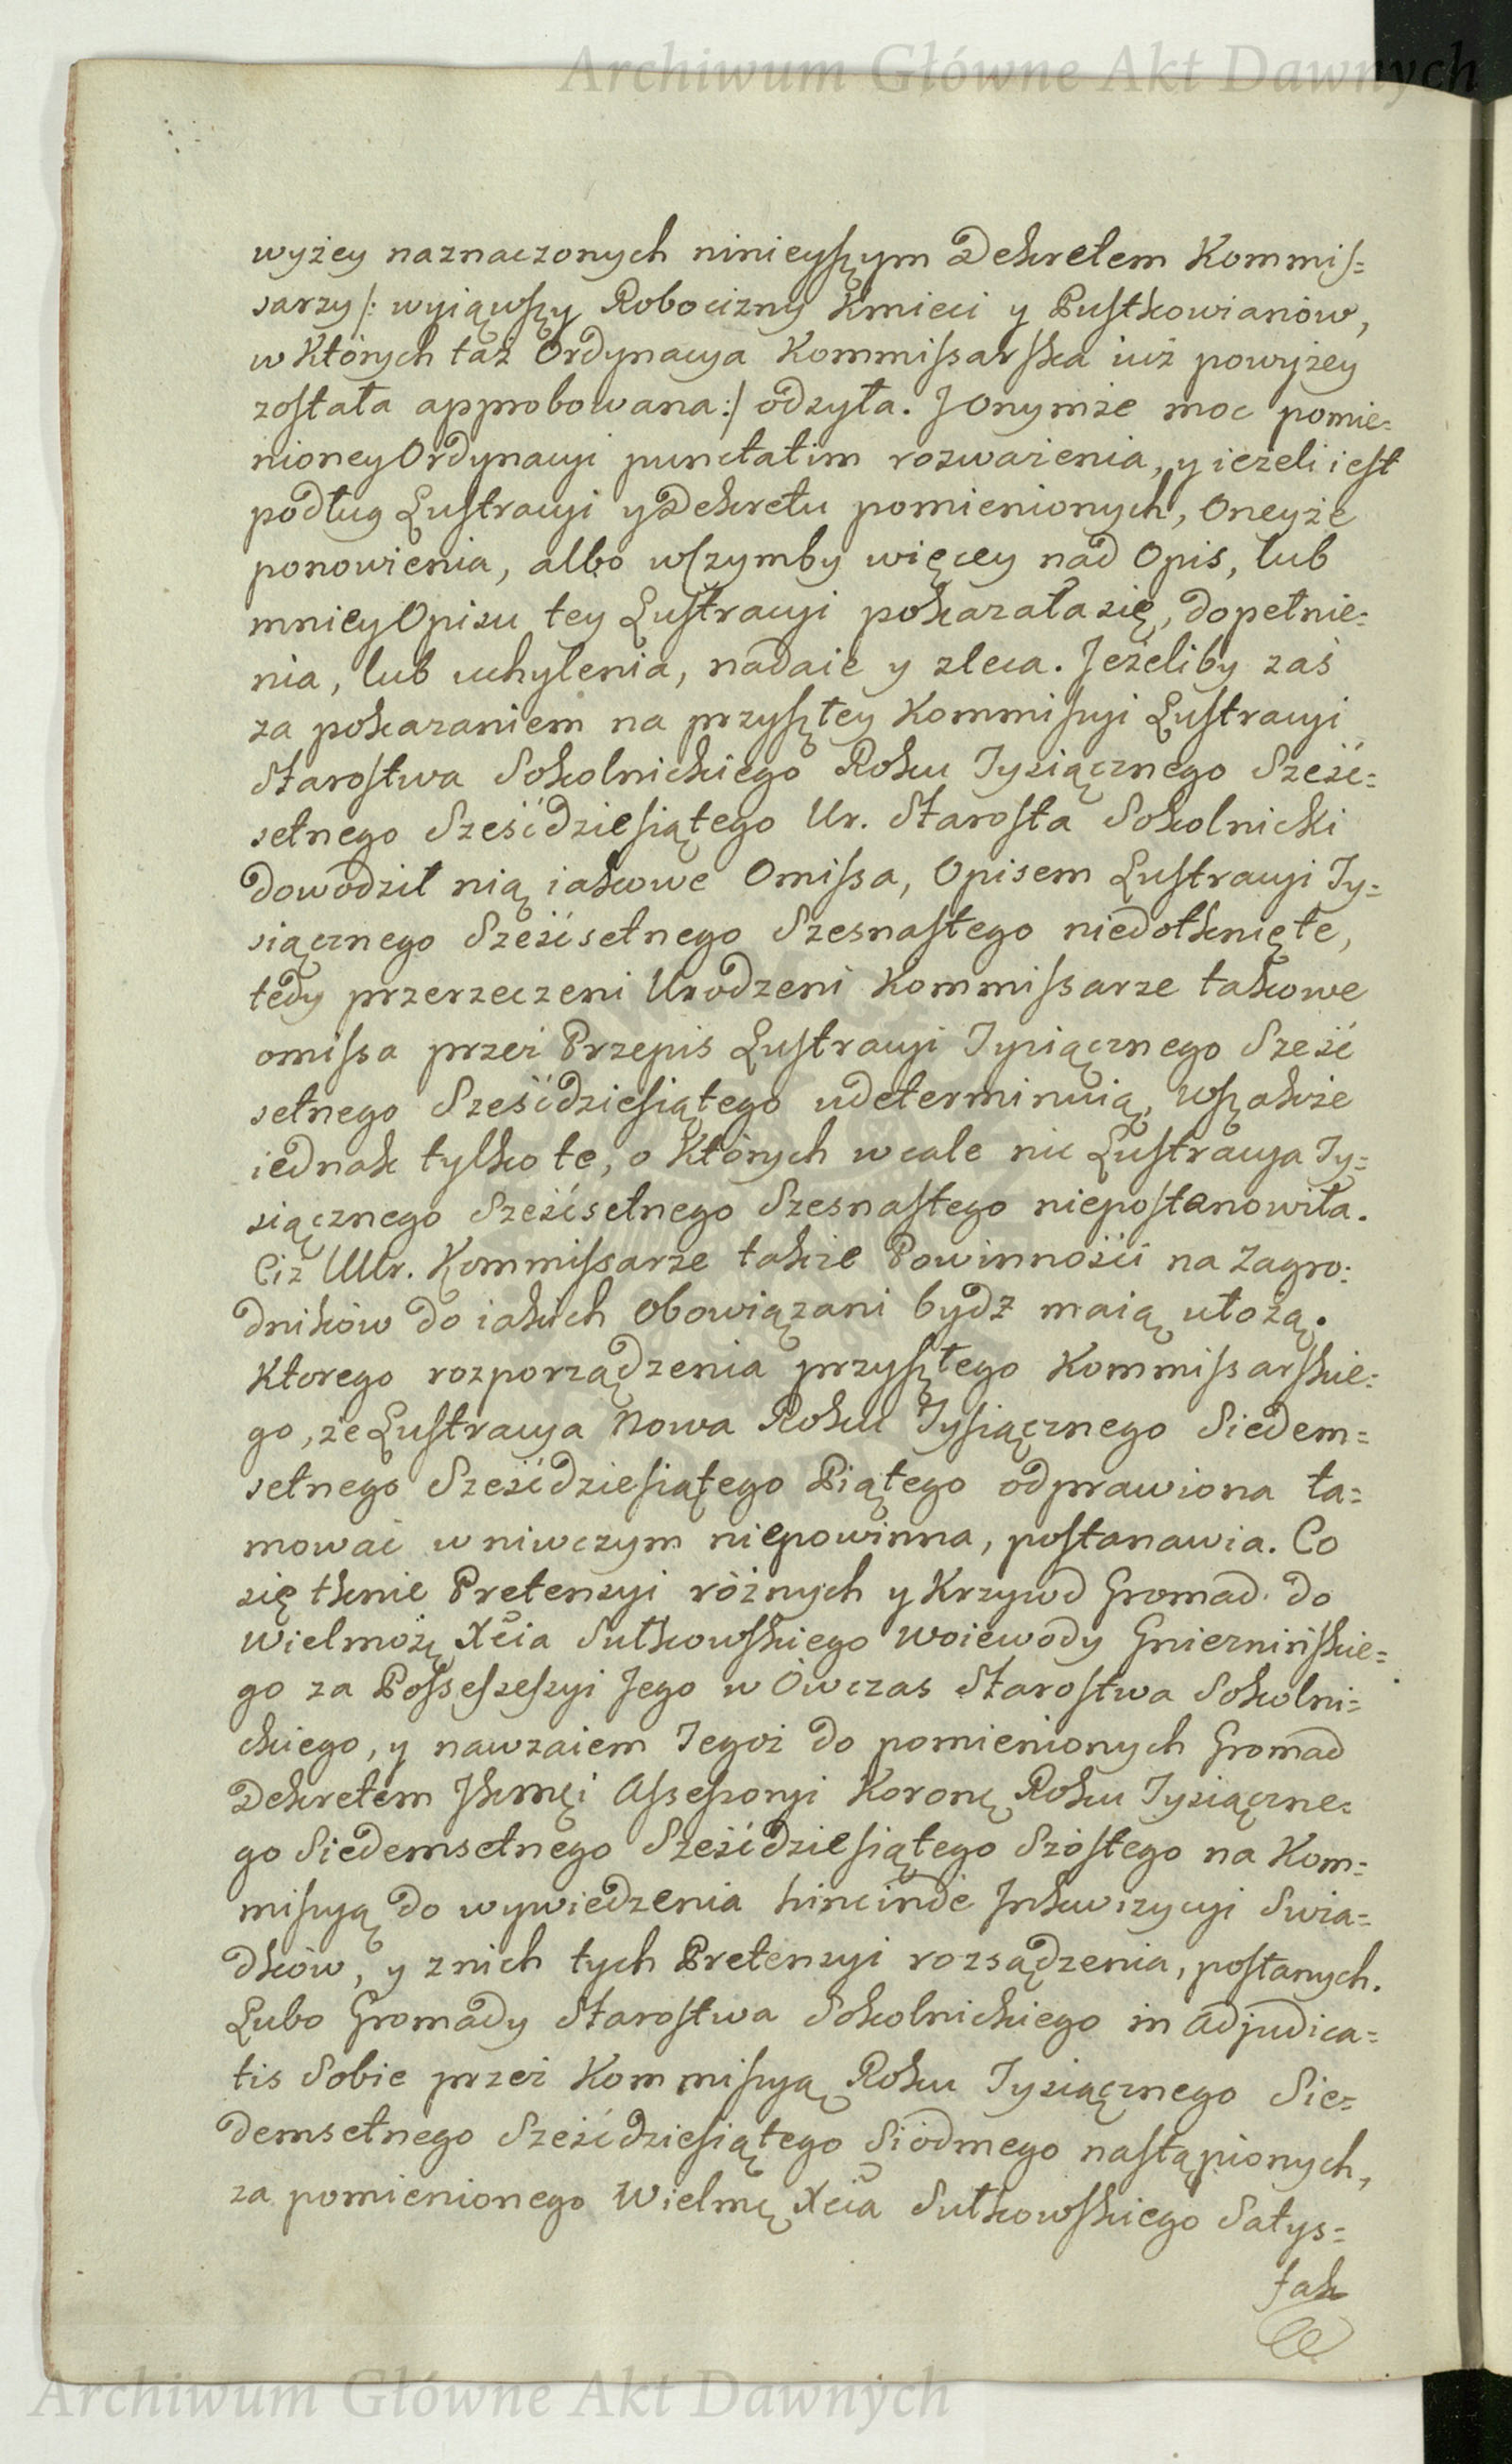 Archiwum Główne Akt Dawnych
wyżey naznaczonych ninieyszym Dekretem Kommis=
sarzy /: wyiąwszy Robocizny Kmieci y Pustkowianów,
w Których taż Ordynacya Kommissarska iuż powyżey
została approbowana :/ odżyła. Jonymże moc pomie=
nioney Ordynacyi punctatim rozważenia, y ieżeli iest
podług Lustracyi y Dekretu pomienionych, Oneyże
ponowienia, albo wszymby więcey nad Opis, lub
mniey Opisu tey Lustracyi pokazała się, dopełnie=
nia, lub uchylenia, nadaie y zleca. Jeżeliby zaś
za pokazaniem na przyszłey Kommissyi Lustracyi
Starostwa Sokolnickiego Roku Tysiącznego Sześć=
setnego Sześćdziesiątego Ur. Starosta Sokolnicki
dowodził nią iakowe Omissa, Opisem Lustracyi Ty=
siącznego Sześćsetnego Szesnastego niedotknięte,
tedy przerzeczeni Urodzeni Kommissarze takowe
omissa przez Przepis Lustracyi Tysiącznego Sześć
setnego Sześćdziesiątego udeterminuią, wszakże
iednak tylko te, o Których wcale nic Lustracya Ty=
siącznego Sześćsetnego Szesnastego niepostanowiła.
Ciż UUr. Kommissarze także Powinności na Zagro=
dników do iakich obowiązani bydź maią ułożą.
Ktorego rozporządzenia przyszłego Kommissarskie=
go, że Lustracya Nowa Roku Tysiącznego Siedem=
setnego Sześćdziesiątego Piątego odprawiona ta=
mować w niwczym niepowinna, postanawia. Co
się tknie Pretensyi różnych y Krzywd Gromad do
Wielmożę Xcia Sułkowskiego Woiewody Gnieznińskie=
go za Possessesyi Jego w Owczas Starostwa Sokolni=
ckiego, y nawzaiem Tegoż do pomienionych Gromad
Dekretem Jkmći Assessoryi Koronę Roku Tysiączne=
go Siedemsetnego Sześćdziesiątego Szóstego na Kom=
missyą do wywiedzenia hincinde Jnkwizycyi Swia=
dków, y znich tych Pretensyi rozsądzenia, posłanych.
Lubo Gromady Starostwa Sokolnickiego in Adjudica=
tis Sobie przez Kommissyą Roku Tysiącznego Sie=
demsetnego Sześćdziesiątego Siódmego nastąpionych,
za pomienionego Wielmę Xcia Sułkowskiego Satys=
fak
Archiwum Główne Akt Dawnych